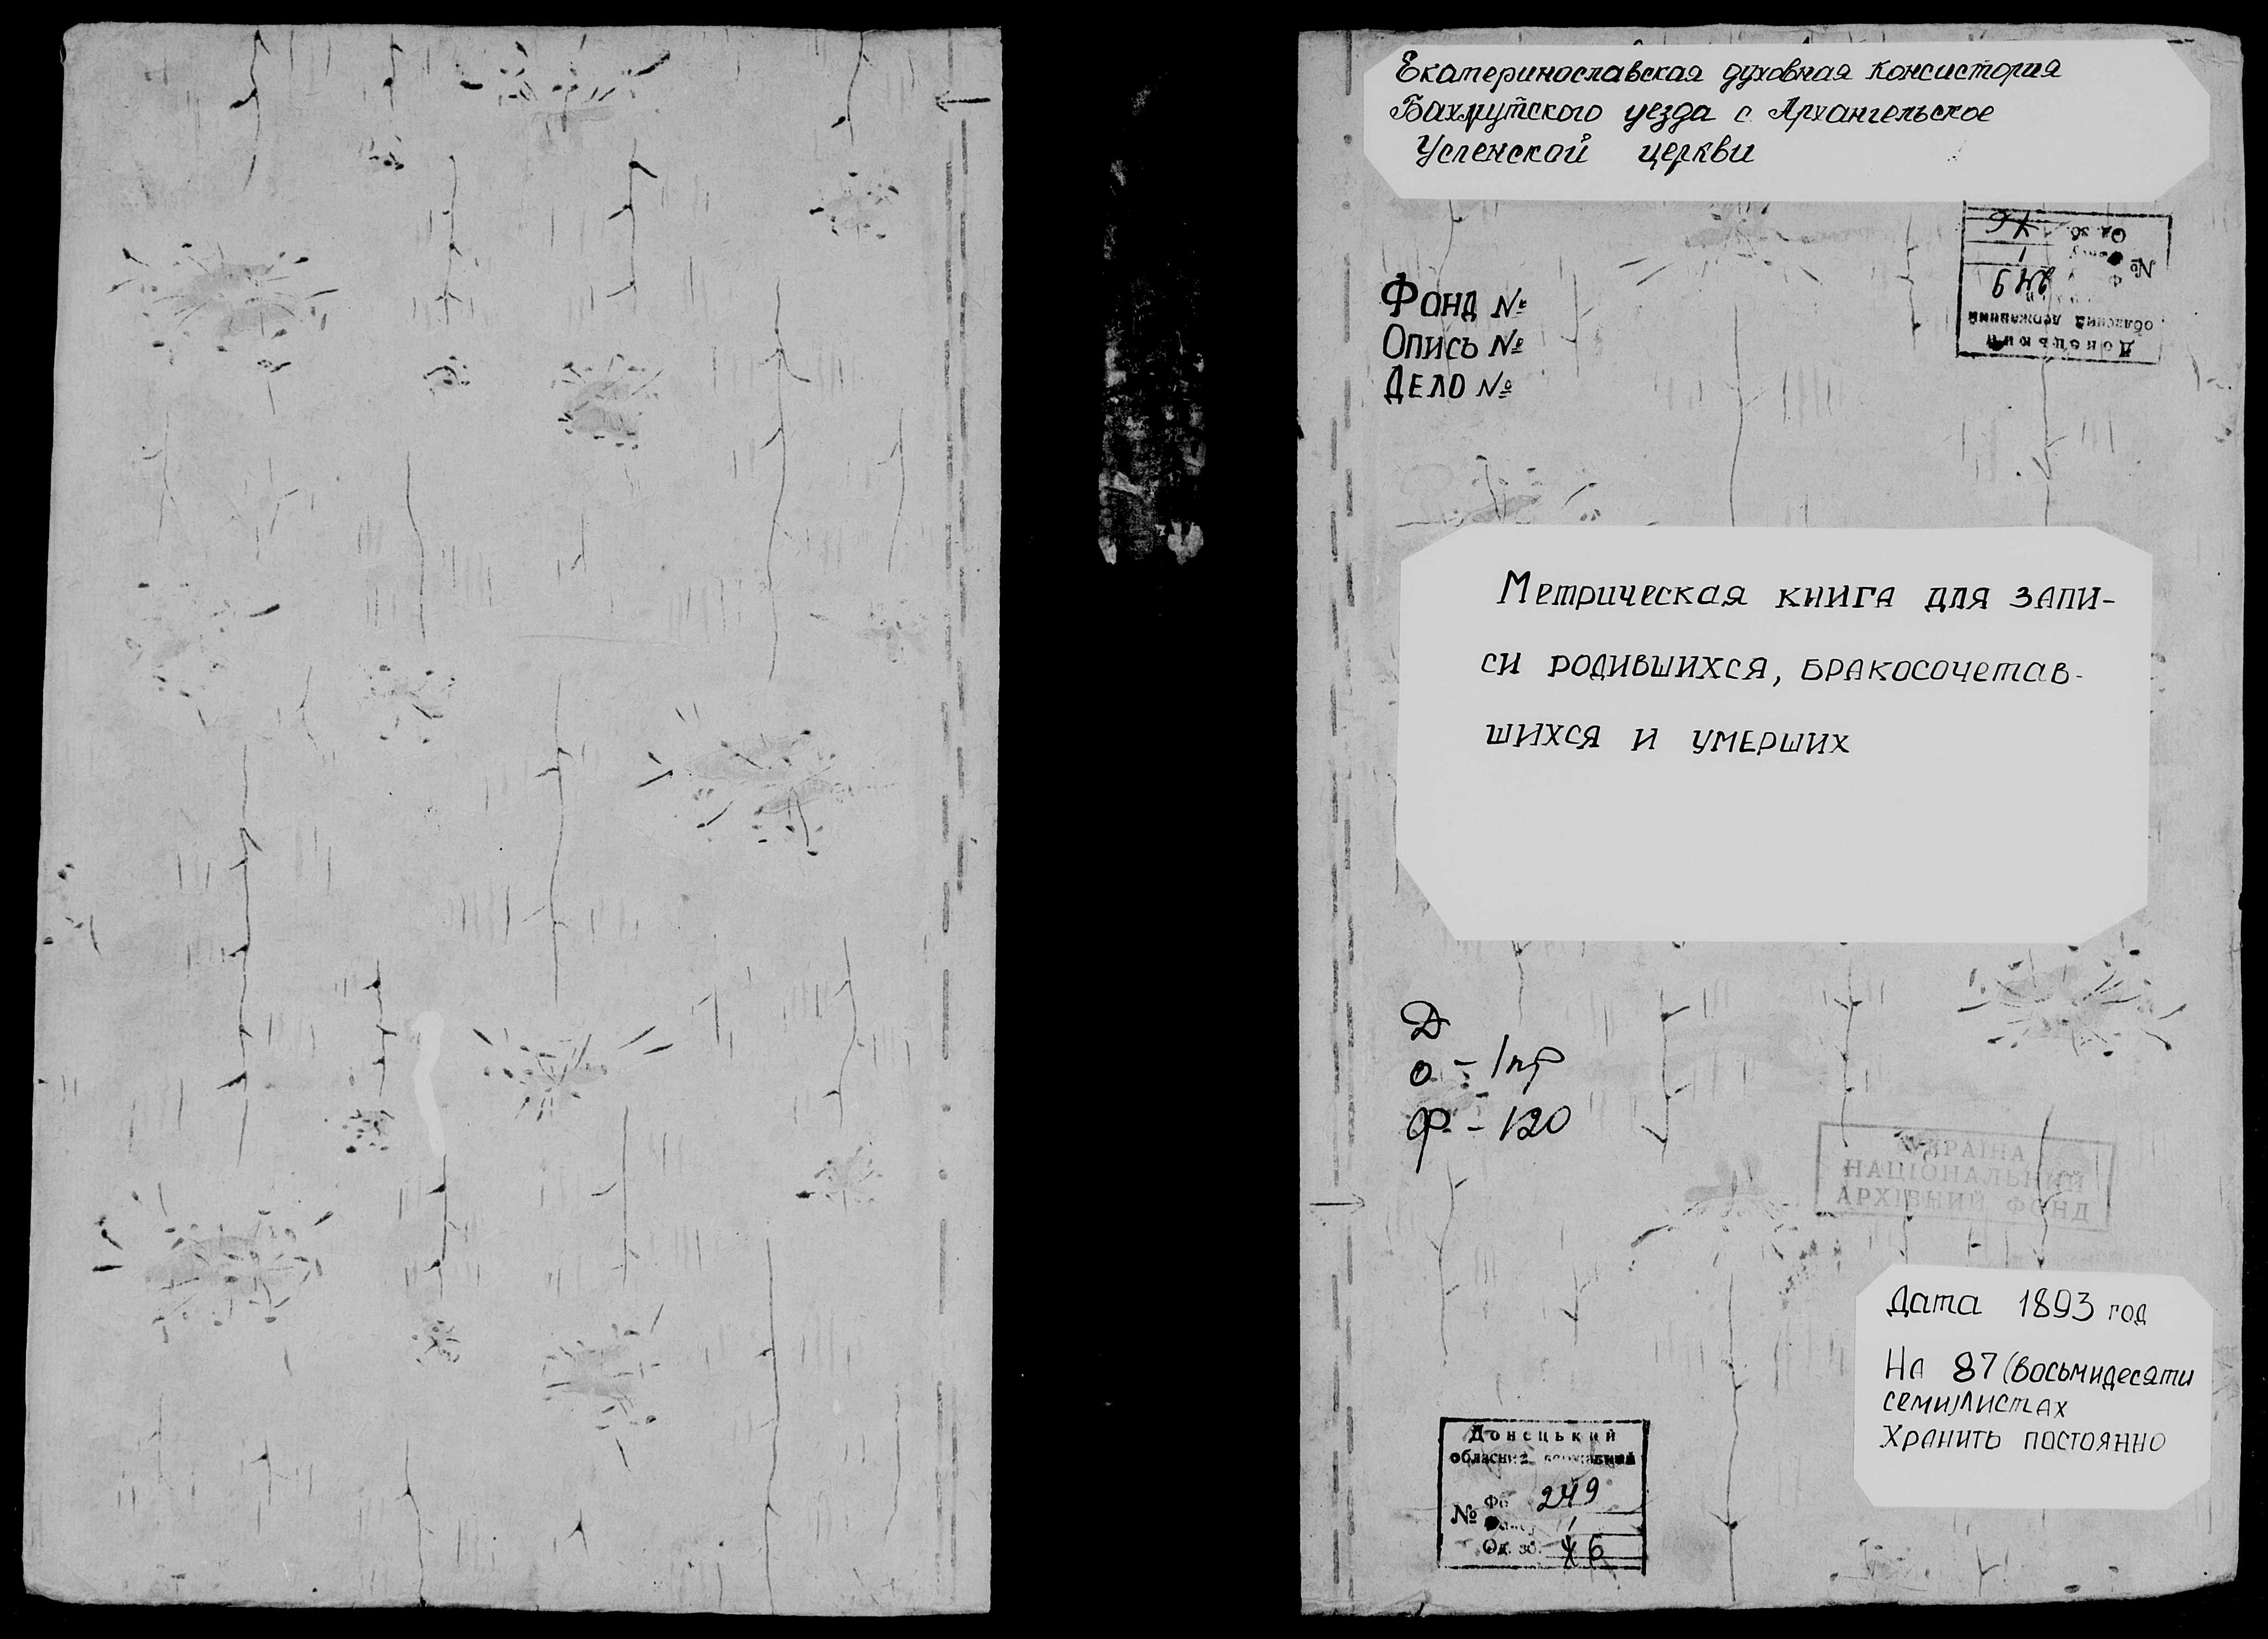 Екатеринославская духовная консистория
Бахмутского уезда с. Архангельское
Успенской церкви
Фонд №
Опись №
Дело №
Донецький
обласний державний
№
249
1
Од. зб.
Метрическая книга для запи-
си родившихся, бракосочетав-
шихся и умерших
Д
о - 1пр
Ф - 120
УКРАЇНА
НАЦІОНАЛЬНИЙ
АРХІВНИЙ ФОНД
Дата 1893 год
На 87 (восьмидесяти
семи) листах
Хранить постоянно
Донецький
обласний державний
№
249
1
Од. зб. 6